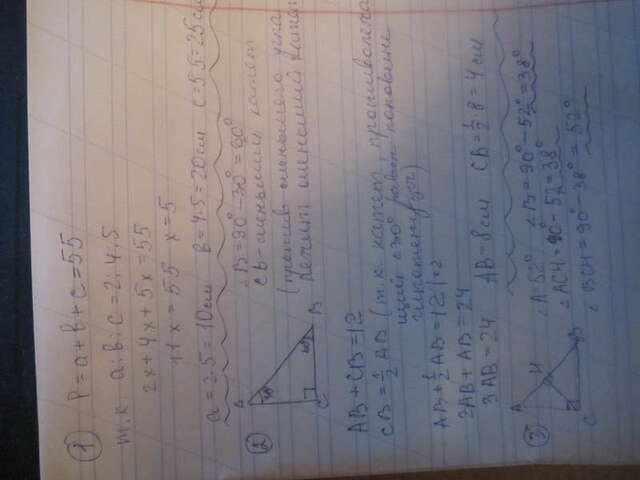 1 P = a + b + c = 55
т.к. a : b : c = 2 : 4 : 5
2x + 4x + 5x = 55
11x = 55 x = 5
a = 2·5 = 10 см b = 4·5 = 20 см c = 5·5 = 25 см
2 A 30° C 60° B
∠B = 90° - 30° = 60°
CB - меньший катет
(против меньшего угла
лежит меньший катет
AB + CB = 12
CB = 1/2 AB (т.к. катет, противолежа
щий ∠30° равен половине
гипотенузы)
AB + 1/2 AB = 12 | ·2
2AB + AB = 24
3AB = 24 AB = 8 см CB = 1/2 · 8 = 4 см
3 A H C B
∠A = 52° ∠B = 90° - 52° = 38°
∠ACH = 90° - 52 = 38°
∠BCH = 90° - 38° = 52°